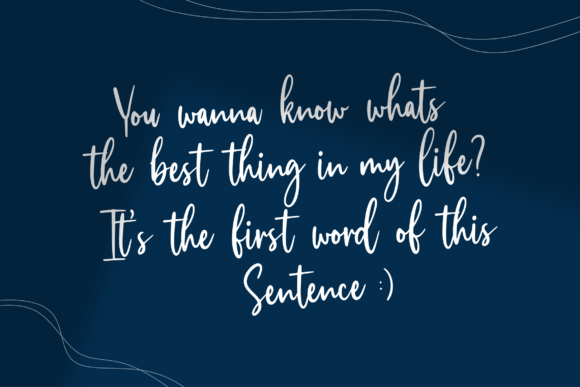 You wanna know whats
the best thing in my life?
It's the first word of this
Sentence :)